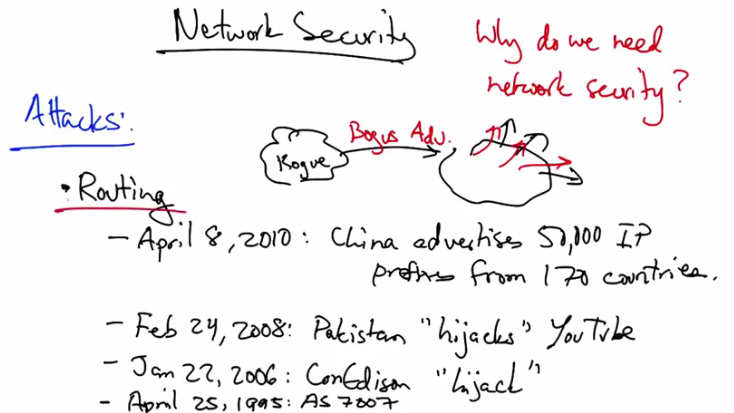 Network Security
Why do we need
network security?
Attacks:
Rogue
Bogus Adv.
• Routing
- April 8, 2010: China advertises 50,000 IP
prefixes from 170 countries.
- Feb 24, 2008: Pakistan "hijacks" YouTube
- Jan 22, 2006: ConEdison "hijack"
- April 25, 1995: AS 7007